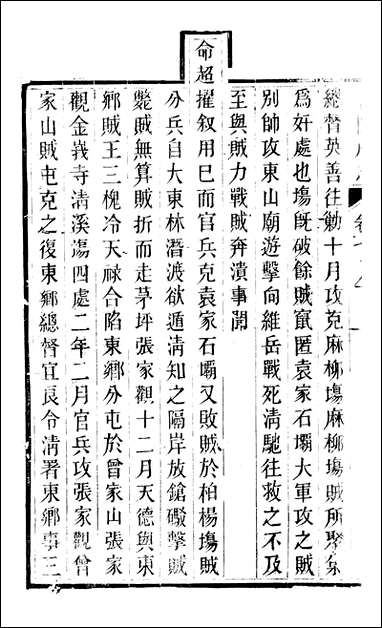 總督英善往勦十月攻克麻柳塲麻柳塲賊所聚衆
爲奸處也塲旣破餘賊竄匿袁家石壩大軍攻之賊
別師攻東山廟遊擊向維岳戰死清馳往救之不及
至與賊力戰賊奔潰事聞
命超擢叙用巳而官兵克袁家石壩又敗賊於柏楊塲賊
分兵自大東林潛渡欲遁清知之隔岸放鎗礮擊賊
斃賊無算賊折而走茅坪張家觀十二月天德與東
鄉賊王三槐冷天祿合陷東鄉分屯於曾家山張家
觀金峩寺清溪塲四處二年二月官兵攻張家觀曾
家山賊屯克之復東鄉總督宜良令清署東鄉事三